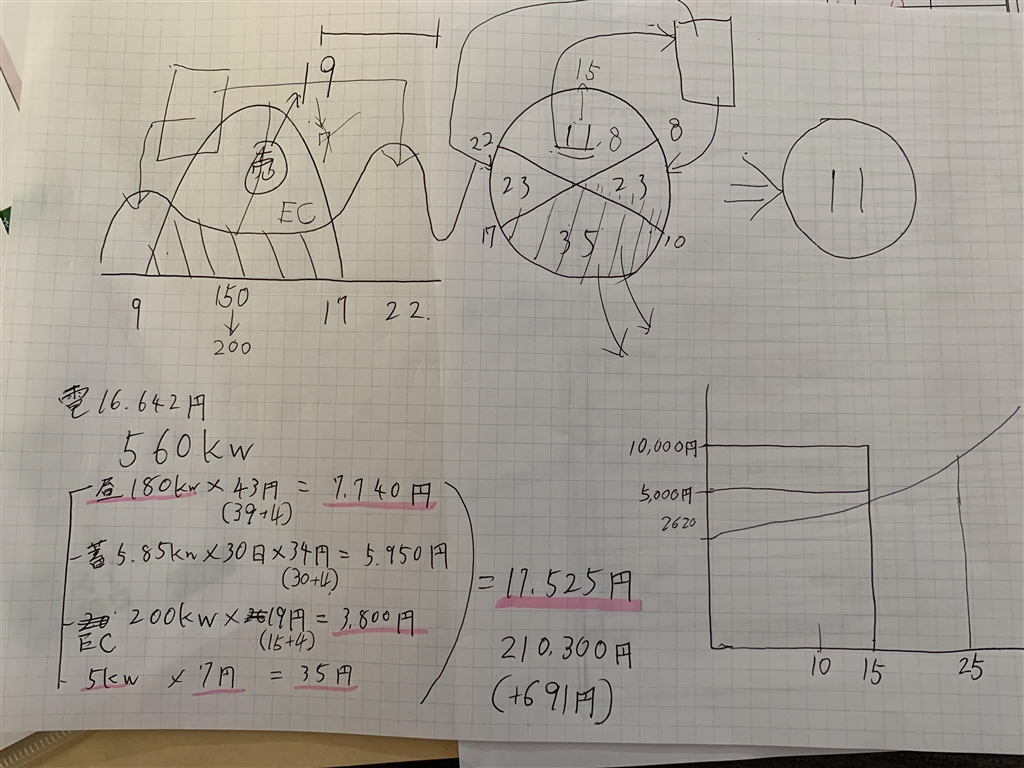 19
7
売
EC
9 150 17 22.
200
15
22 11.8 8
23 2,3
17 35 10
11
電16.642円
560kw
昼180kw×43円=7.740円
(39+4)
蓄5.85kw×30日×34円=5.950円
(30+4)
EC 200kw×19円=3,800円
(15+4)
5kw×7円=35円
=17.525円
210.300円
(+691円)
10,000円
5,000円
2620
10 15 25